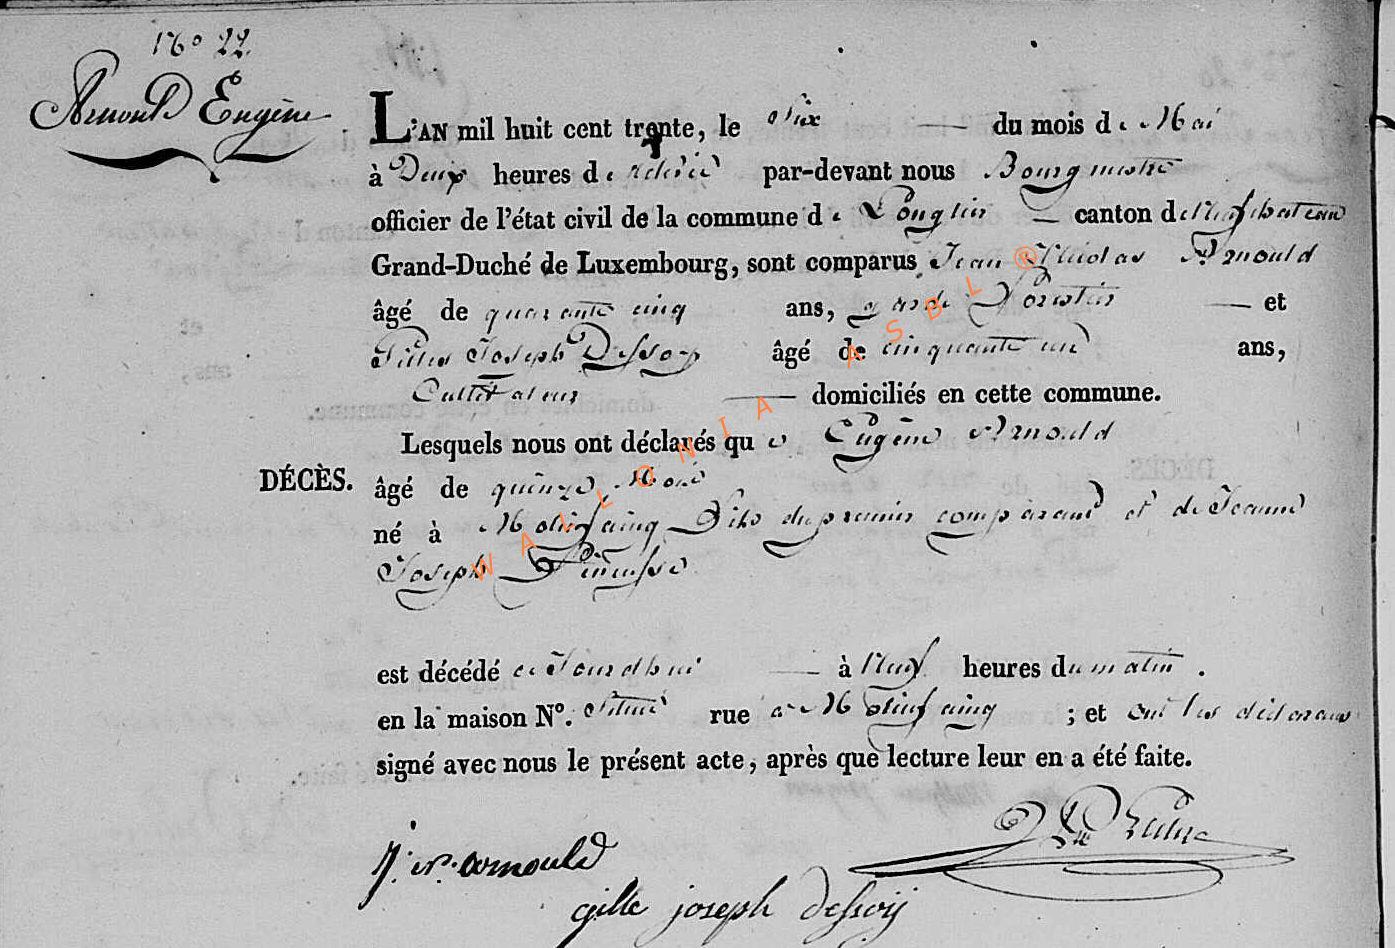 N° 22.
Arnould Eugène
L'AN mil huit cent trente, le six du mois de Mai
à Deux heures de relevée par-devant nous Bourgmestre
officier de l'état civil de la commune de Longlier canton de Neufchateau
Grand-Duché de Luxembourg, sont comparus Jean Nicolas Arnould
âgé de quarante cinq ans, garde Forestier et
Gilles Joseph Dessoy âgé de cinquante un ans,
Cultivateur domiciliés en cette commune.
Lesquels nous ont déclarés que Eugène Arnould
DÉCÈS. âgé de quinze Mois
né à Molinfaing Fils du premier comparant et de Jeanne
Joseph
est décédé aujourdhui à Neuf heures du matin.
en la maison N°. située rue à Molinfaing ; et ont les déclarans
signé avec nous le présent acte, après que lecture leur en a été faite.
J. N. arnould
gille joseph dessoij
WALLONIA ASBL ®